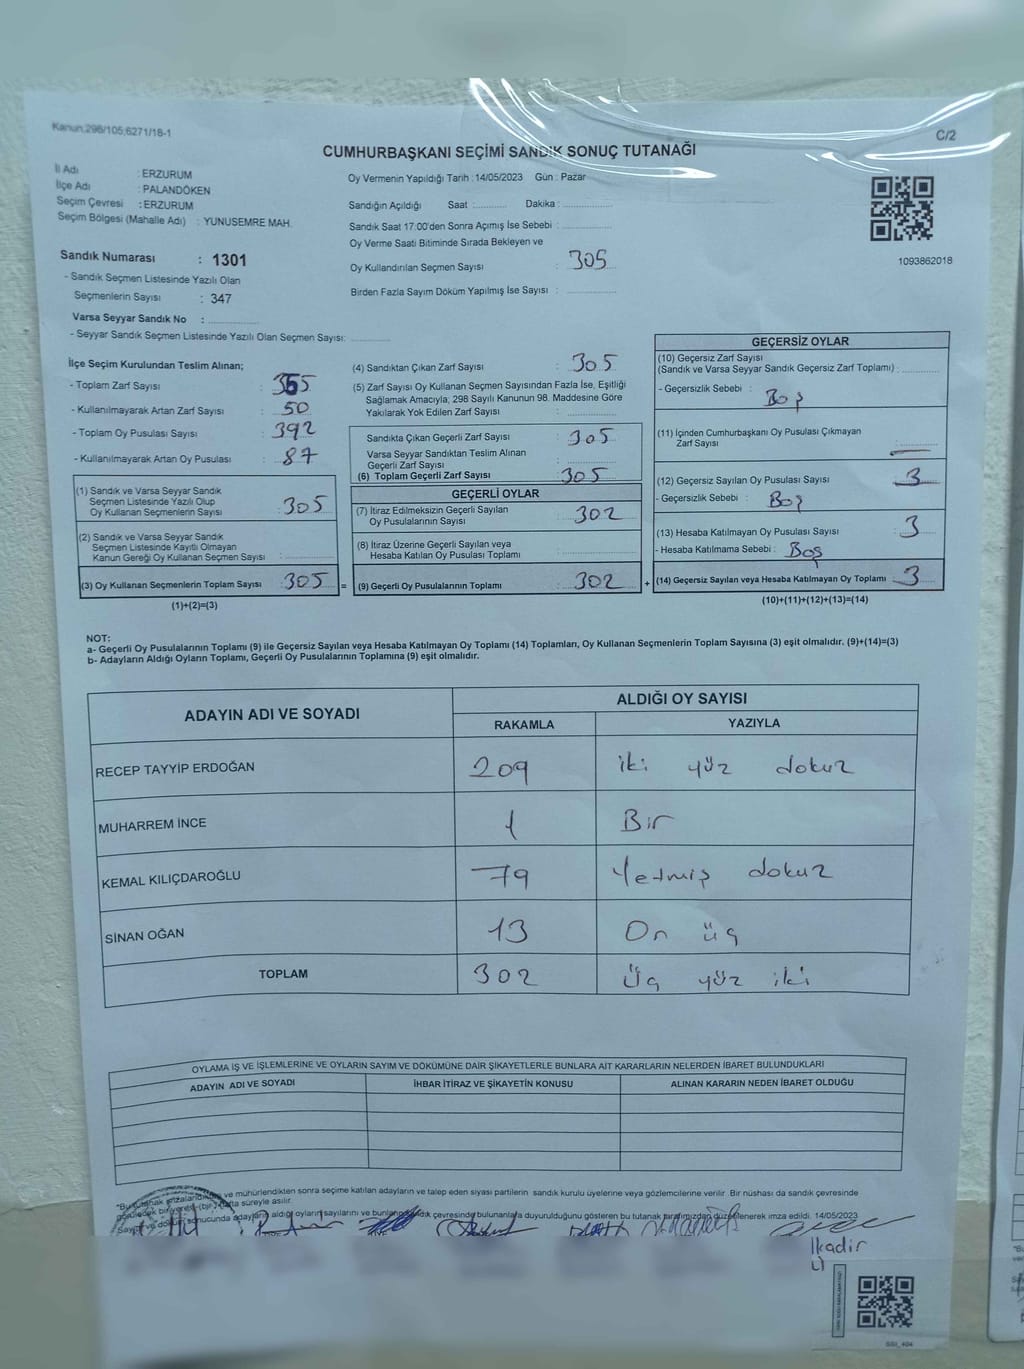 Kanun:298/105,6271/18-1
C/2
CUMHURBAŞKANI SEÇİMİ SANDIK SONUÇ TUTANAĞI
İl Adı : ERZURUM
İlçe Adı : PALANDÖKEN
Seçim Çevresi : ERZURUM
Seçim Bölgesi (Mahalle Adı) : YUNUSEMRE MAH.
Sandık Numarası : 1301
- Sandık Seçmen Listesinde Yazılı Olan
Seçmenlerin Sayısı : 347
Varsa Seyyar Sandık No :
- Seyyar Sandık Seçmen Listesinde Yazılı Olan Seçmen Sayısı:
Oy Vermenin Yapıldığı Tarih : 14/05/2023 Gün : Pazar
Sandığın Açıldığı Saat : Dakika :
Sandık Saat 17:00'den Sonra Açımış İse Sebebi :
Oy Verme Saati Bitiminde Sırada Bekleyen ve
Oy Kullandırılan Seçmen Sayısı : 305
Birden Fazla Sayım Döküm Yapılmış İse Sayısı :
1093862018
İlçe Seçim Kurulundan Teslim Alınan;
- Toplam Zarf Sayısı : 355
- Kullanılmayarak Artan Zarf Sayısı : 50
- Toplam Oy Pusulası Sayısı : 392
- Kullanılmayarak Artan Oy Pusulası : 87
(1) Sandık ve Varsa Seyyar Sandık
Seçmen Listesinde Yazılı Olup
Oy Kullanan Seçmenlerin Sayısı : 305
(2) Sandık ve Varsa Seyyar Sandık
Seçmen Listesinde Kayıtlı Olmayan
Kanun Gereği Oy Kullanan Seçmen Sayısı :
(3) Oy Kullanan Seçmenlerin Toplam Sayısı : 305 =
(1)+(2)=(3)
(4) Sandıktan Çıkan Zarf Sayısı : 305
(5) Zarf Sayısı Oy Kullanan Seçmen Sayısından Fazla İse, Eşitliği
Sağlamak Amacıyla, 298 Sayılı Kanunun 98. Maddesine Göre
Yakılarak Yok Edilen Zarf Sayısı :
Sandıkta Çıkan Geçerli Zarf Sayısı : 305
Varsa Seyyar Sandıktan Teslim Alınan
Geçerli Zarf Sayısı :
(6) Toplam Geçerli Zarf Sayısı : 305
GEÇERLİ OYLAR
(7) İtiraz Edilmeksizin Geçerli Sayılan
Oy Pusulalarının Sayısı : 302
(8) İtiraz Üzerine Geçerli Sayılan veya
Hesaba Katılan Oy Pusulası Toplamı :
(9) Geçerli Oy Pusulalarının Toplamı : 302 +
GEÇERSİZ OYLAR
(10) Geçersiz Zarf Sayısı
(Sandık ve Varsa Seyyar Sandık Geçersiz Zarf Toplamı) :
- Geçersizlik Sebebi : Boş
(11) İçinden Cumhurbaşkanı Oy Pusulası Çıkmayan
Zarf Sayısı :
(12) Geçersiz Sayılan Oy Pusulası Sayısı : 3
- Geçersizlik Sebebi : Boş
(13) Hesaba Katılmayan Oy Pusulası Sayısı : 3
- Hesaba Katılmama Sebebi : Boş
(14) Geçersiz Sayılan veya Hesaba Katılmayan Oy Toplamı : 3
(10)+(11)+(12)+(13)=(14)
NOT:
a- Geçerli Oy Pusulalarının Toplamı (9) ile Geçersiz Sayılan veya Hesaba Katılmayan Oy Toplamı (14) Toplamları, Oy Kullanan Seçmenlerin Toplam Sayısına (3) eşit olmalıdır. (9)+(14)=(3)
b- Adayların Aldığı Oyların Toplamı, Geçerli Oy Pusulalarının Toplamına (9) eşit olmalıdır.
ADAYIN ADI VE SOYADI
ALDIĞI OY SAYISI
RAKAMLA YAZIYLA
RECEP TAYYİP ERDOĞAN 209 iki yüz dokuz
MUHARREM İNCE 1 Bir
KEMAL KILIÇDAROĞLU 79 Yetmiş dokuz
SİNAN OĞAN 13 On üç
TOPLAM 302 Üç yüz iki
OYLAMA İŞ VE İŞLEMLERİNE VE OYLARIN SAYIM VE DÖKÜMÜNE DAİR ŞİKAYETLERLE BUNLARA AİT KARARLARIN NELERDEN İBARET BULUNDUKLARI
ADAYIN ADI VE SOYADI İHBAR İTİRAZ VE ŞİKAYETİN KONUSU ALINAN KARARIN NEDEN İBARET OLDUĞU
ve mühürlendikten sonra seçime katılan adayların ve talep eden siyasi partilerin sandık kurulu üyelerine veya gözlemcilerine verilir. Bir nüshası da sandık çevresinde
süreyle asılır.
sonucunda adayların aldığı oyların sayılarını ve çevresinde bulunanlara duyurulduğunu gösteren bu tutanak tarafımızdan düzenlenerek imza edildi. 14/05/2023